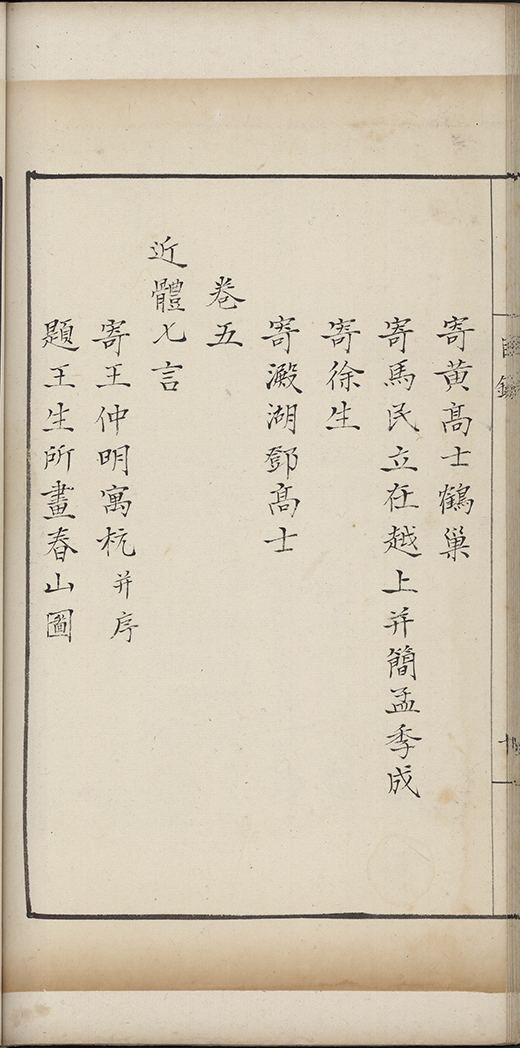 寄黄髙士鶴巢
寄馬民立在越上并簡孟季成
寄徐生
寄澱湖鄧髙士
卷五
近體七言
寄王仲明寓杭并序
題王生所畫春山圖
目錄